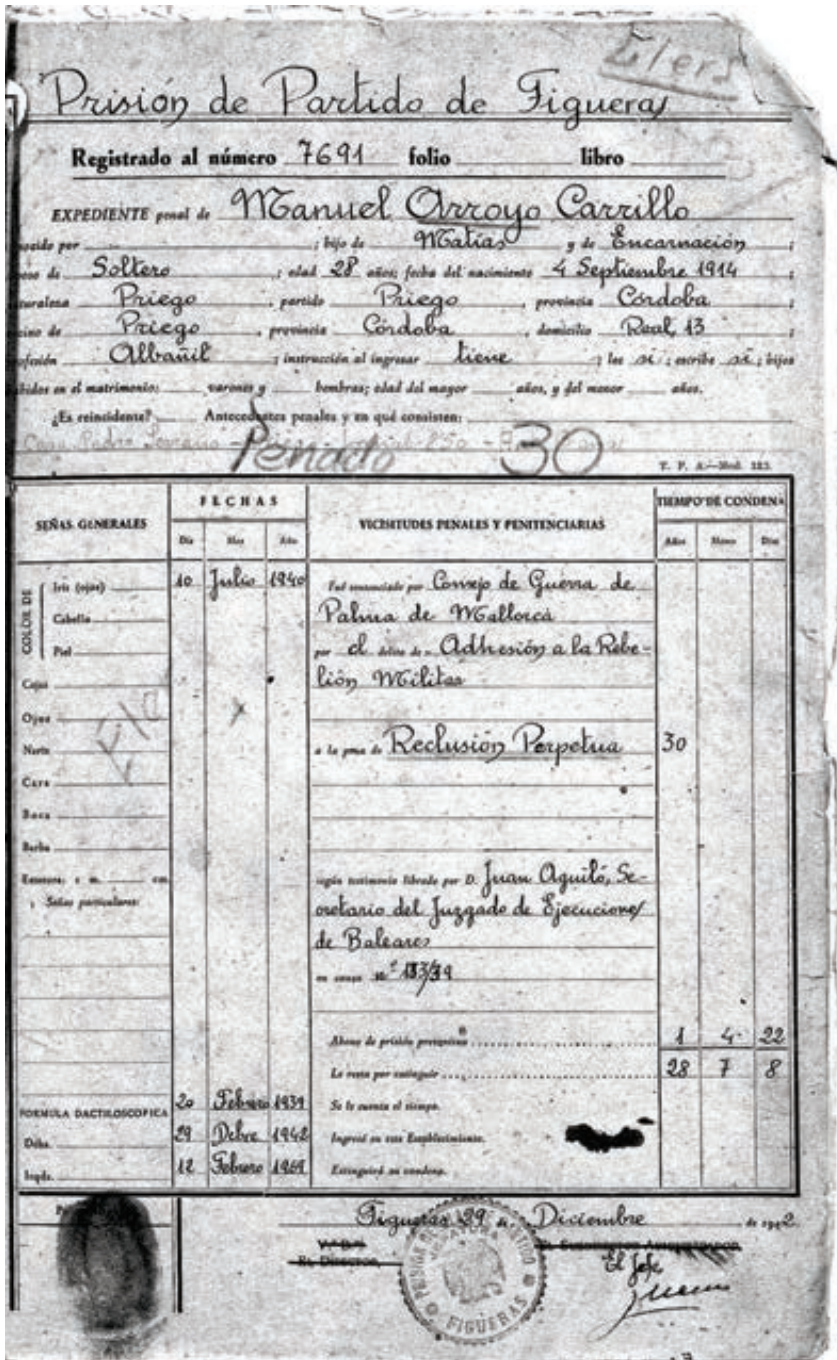 Elers
Prisión de Partido de Figueras
Registrado al número 7691 folio libro
EXPEDIENTE penal de Manuel Arroyo Carrillo
ocido por ; hijo de Matías y de Encarnación ;
de Soltero ; edad 28 años; fecha del nacimiento 4 Septiembre 1914
uraleza Priego , partido Priego , provincia Córdoba
cino de Priego , provincia Córdoba , domicilio Real, 13 ;
ofesión Albañil ; instrucción al ingresar tiene ; lee sí ; escribe sí ; hijos
bidos en el matrimonio: varones y hembras; edad del mayor años, y del menor años.
¿Es reincidente? Antecedentes penales y en qué consisten:
Penado 30
T. P. A.—Mod. 123.
SEÑAS GENERALES FECHAS VICISITUDES PENALES Y PENITENCIARIAS TIEMPO DE CONDENA
Día Mes Año Años Meses Días
COLOR DE Iris (ojos) 10 Julio 1940 Fué sentenciado por Consejo de Guerra de
Cabello Palma de Mallorca
Piel por el delito de Adhesión a la Rebe-
Cejas lión Militar
Ojos
Nariz a la pena de Reclusión Perpetua 30
Cara
Boca
Barba
Estatura: 1 m. cm. según testimonio librado por D. Juan Aguiló, Se-
Señas particulares: cretario del Juzgado de Ejecuciones
de Baleares
en causa nº /39
Abono de prisión preventiva 1 4 22
Le resta por extinguir 28 7 8
FORMULA DACTILOSCOPICA 20 Febrero 1939 Se le cuenta el tiempo.
Dcha. 29 Dcbre 1942 Ingresó en este Establecimiento.
Izqda. 12 Febrero 1969 Extinguirá su condena.
Figueras 29 de Diciembre de 1942
V.º B.º
EL DIRECTOR
El Jefe
PRISION DE PARTIDO
JEFATURA
FIGUERAS